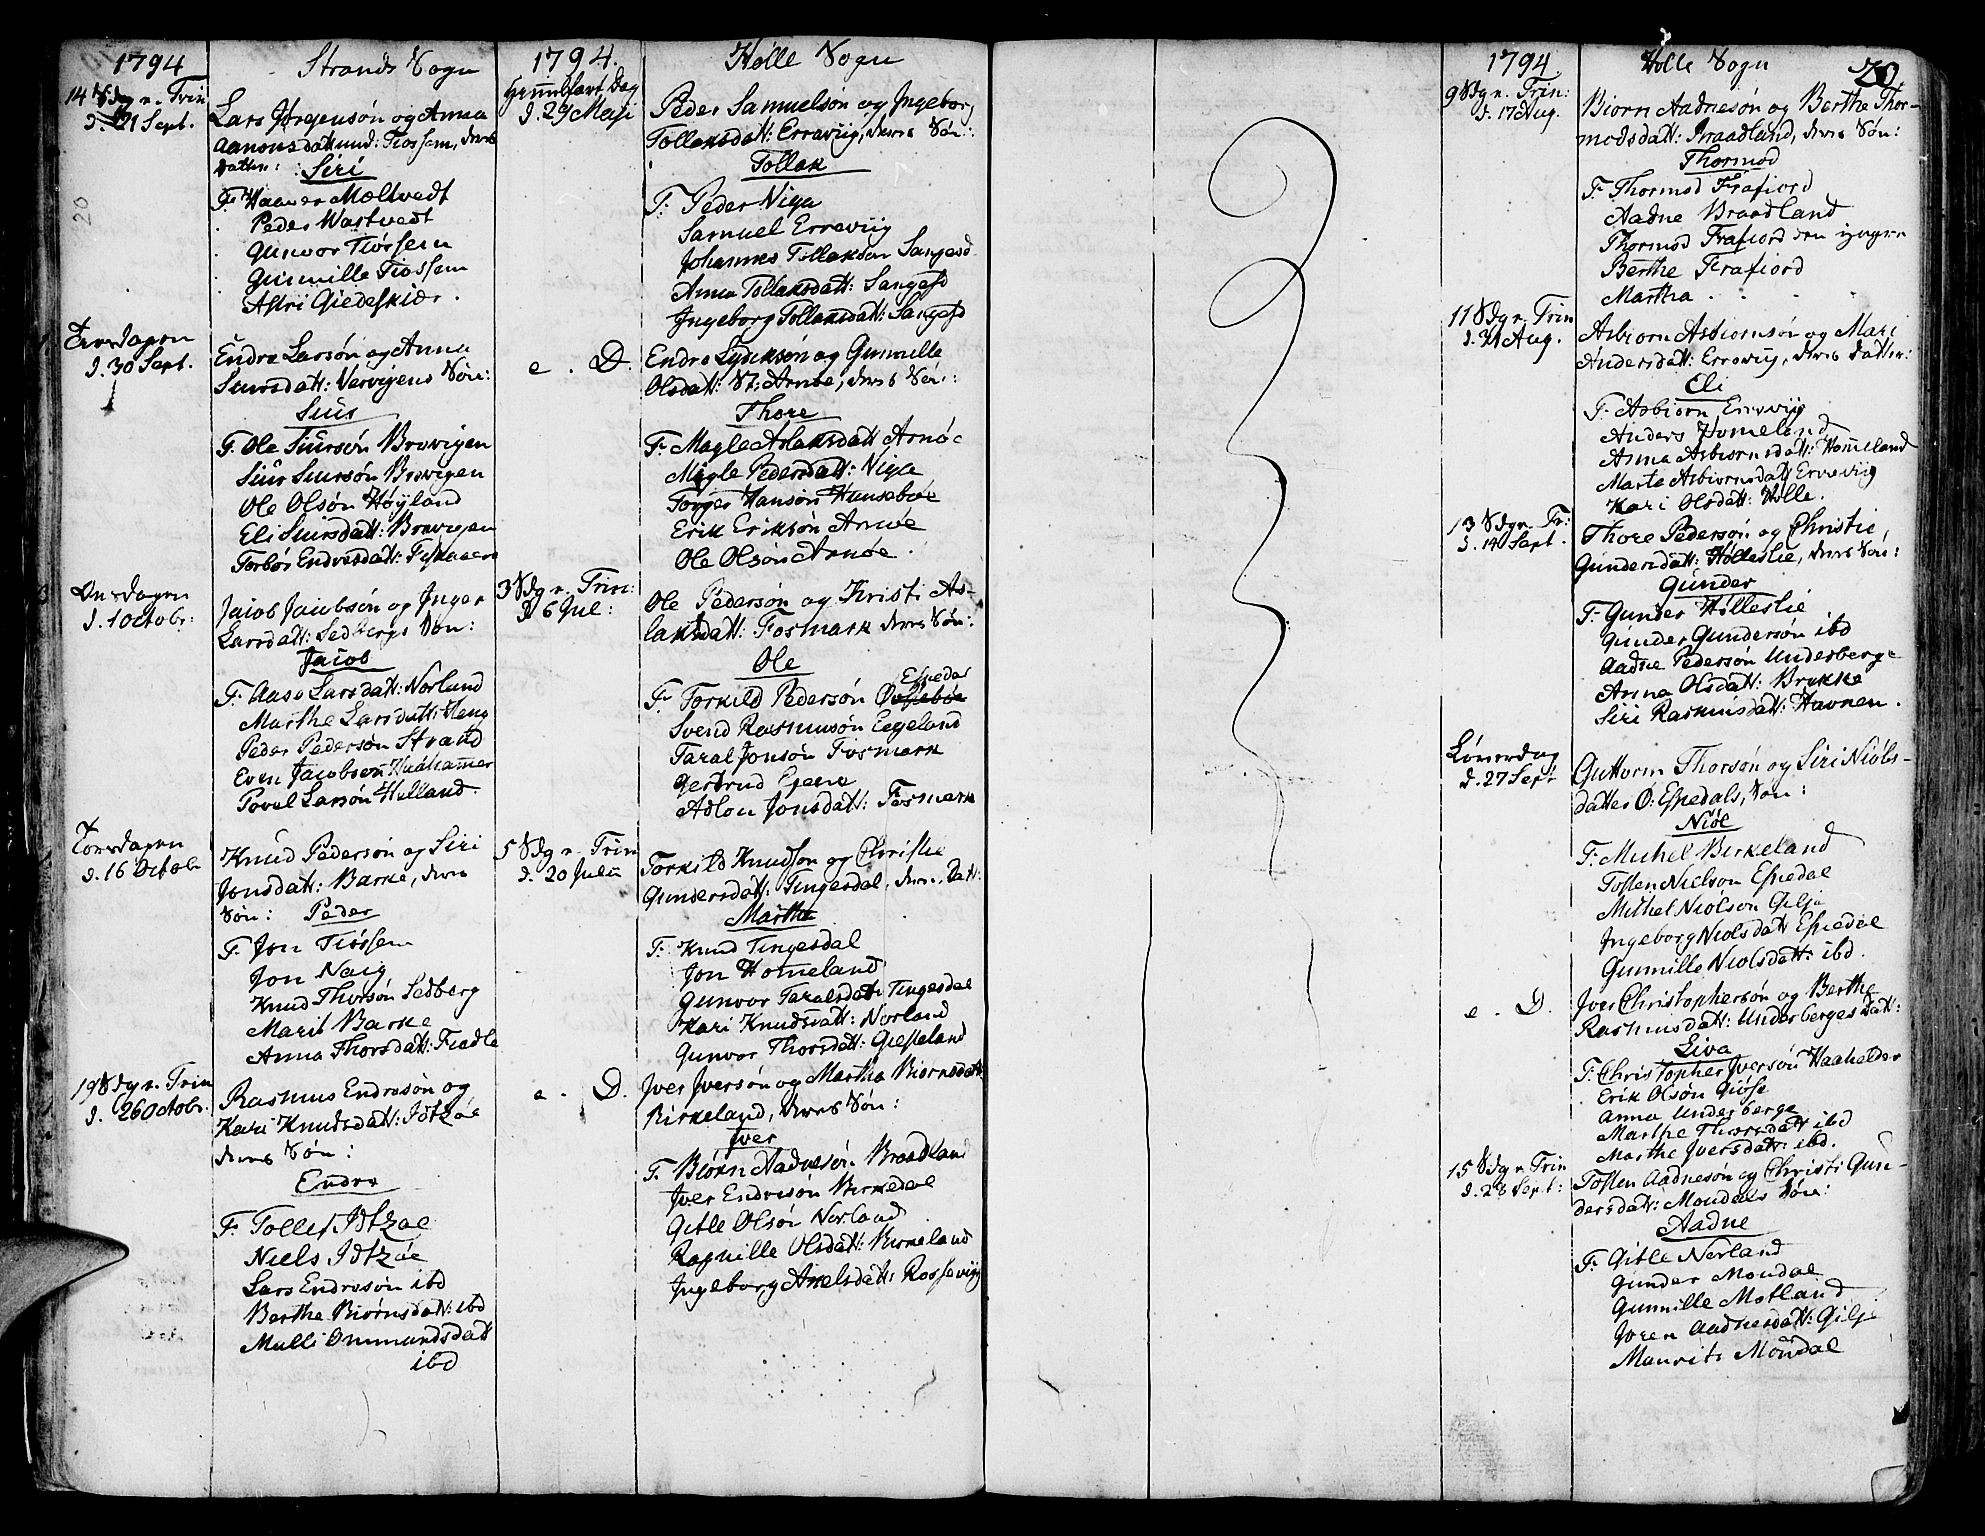 1794
Strands Sogn
14 Sdg n. Trin
d. 21 Sept.
Lars Jørgensøn og Anna
Aanonsdatt: Tiossem, deres
Datter: Siri
F. Maltvedt
Peder Wastvedt
Gunvor Tiøssem
Gunnille Tiossem
Astri Giedeskiær.
Tirsdagen
d. 30 Sept.
Endre Larsøn og Anna
Siursdatt: Søn:
Siur
F. Ole Siursøn Brevigen
Siur Siursøn Brevigen
Ole Olsøn Høyland
Eli Siursdatt: Brevigen
Torbor Endresdatt:
Onsdagen
d. 1 Octobr:
Jacob Jacobsøn og Inger
Larsdatt: Sedbergs Søn:
Jacob
F. Aase Larsdatt: Norland
Marthe Larsdatt: Heng
Peder Pedersøn Strand
Even Jacobsøn
Povel Larsøn Helland.
Torsdagen
d. 16 Octobr
Knud Pedersøn og Siri
Jonsdatt: Barke, deres
Søn: Peder
F. Jon Tiøssem
Jon Naig
Knud Thorsøn Sedberg
Marit Barke
Anna Thorsdatt: Fiadle
19 Sdg n. Trin
d. 26 Octobr.
Rasmus Endresøn og
Kari Knudsdatt: Idtzøe
deres Søn:
Endre
F. Tollef Idtzøe
Niels Idtzøe
Lars Endresøn ibd
Berthe Biørnsdatt: ibd
Malli Ommundsdatt
ibd
1794.
Hølle Sogn
Himmelfart Dag
d. 29 Maji
Peder Samuelsøn og Ingeborg
Tollaksdatt: Erreviig, deres Søn:
Tollak
F. Peder Niga
Samuel Erreviig
Johannes Tollaksøn Sangesd
Anna Tollaksdatt: Sangesd
Ingeborg Tollaksdatt: Sangesd
e. D.
Endre og Gunnille
Olsdatt: Arnøe, deres Søn:
Thore
F. Magle Aslaksdatt Arnøe
Magle Pedersdatt: Niga
Torger Hansøn
Erik Eriksøn Arnøe
Ole Olsøn Arnøe.
3 Sdg n. Trin:
d. 6 Jul:
Ole Pedersøn og Kristi As-
laksdatt: Fosmark deres Søn:
Ole
F. Torkild Pedersøn Espedal
Svend Rasmusøn Eegeland
Taral Jonsøn Fosmark
Gertrud
Adlon Jonsdatt: Fosmark
5 Sdg n. Trin
d. 20 Julii
Torkild Knudsøn og Christie
Gundersdatt: Tingesdal, deres Datt:
Martha
F. Knud Tingesdal
Jon Homeland
Gunvor Taralsdatt: Tingesdal
Kari Knudsdatt: Norland
Gunvor Thorsdatt: Gieseland
e. D.
Iver Iversøn og Martha Biørnsdatt:
Birkeland, deres Søn:
Iver
F. Biørn Aadnesøn Braadland
Iver Endresøn Birkedal
Gitle Olsøn Norland
Ragnille Olsdatt: Birkeland
Ingeborg Axelsdatt: Rosseviig
1794
Hølle Sogn
20
9 Sdg n. Trin:
d. 17 Aug.
Biørn Aadnesøn og Berthe Thor-
modsdatt: Braadland, deres Søn:
Thormod
F. Thormod Frafiord
Aadne Braadland
Thormod Frafiord den yngre
Berthe Frafiord
Martha
11 Sdg n. Trin
d. 31 Aug.
Asbiorn Asbiornsøn og Mari
Andersdatt: Erreviig, deres Datter:
Eli
F. Asbiorn Erreviig
Anders Homeland
Anna Asbiornsdatt: Homeland
Marta Asbiornsdatt Erreviig
Kari Olsdatt: Hølle.
13 Sdg n. Tr:
d. 14 Sept.
Thore Pedersøn og Christie
Gundersdatt: Hølleslie, deres Søn:
Gunder
F. Gunder Hølleslie
Gunder Gundersøn ibd
Aadne Pedersøn Underberge
Anna Olsdatt: Brekke
Siri Rasmusdatt: Havnen.
Løverdag
d. 27 Sept
Guttorm Thorsøn og Siri Niøls-
datter Ø. Espedals, Søn:
Niøl
F. Michel Birkeland
Tosten Nielson Espedal
Michel Niolson Gilje
Ingeborg Niolsdatt Espedal
Gunnille Niolsdatt: ibd.
e. D.
Iver Christophersøn og Berthe
Rasmusdatt: Underberges Datt:
Siva
F. Christopher Iversøn Haahelder
Erik Olsøn Giøse
Anna Underberge
Marthe Thorsdatt ibd
Marthe Iversdatt: ibd.
15 Sdg n. Trin
d. 28 Sept:
Tosten Aadnesøn og Christi Gun-
dersdatt: Mondals Søn:
Aadne
F. Gitle Norland
Gunder Mondal
Gunnille Motland
Joren Aadnesdatt: Gilje
Maurits Mondal
20